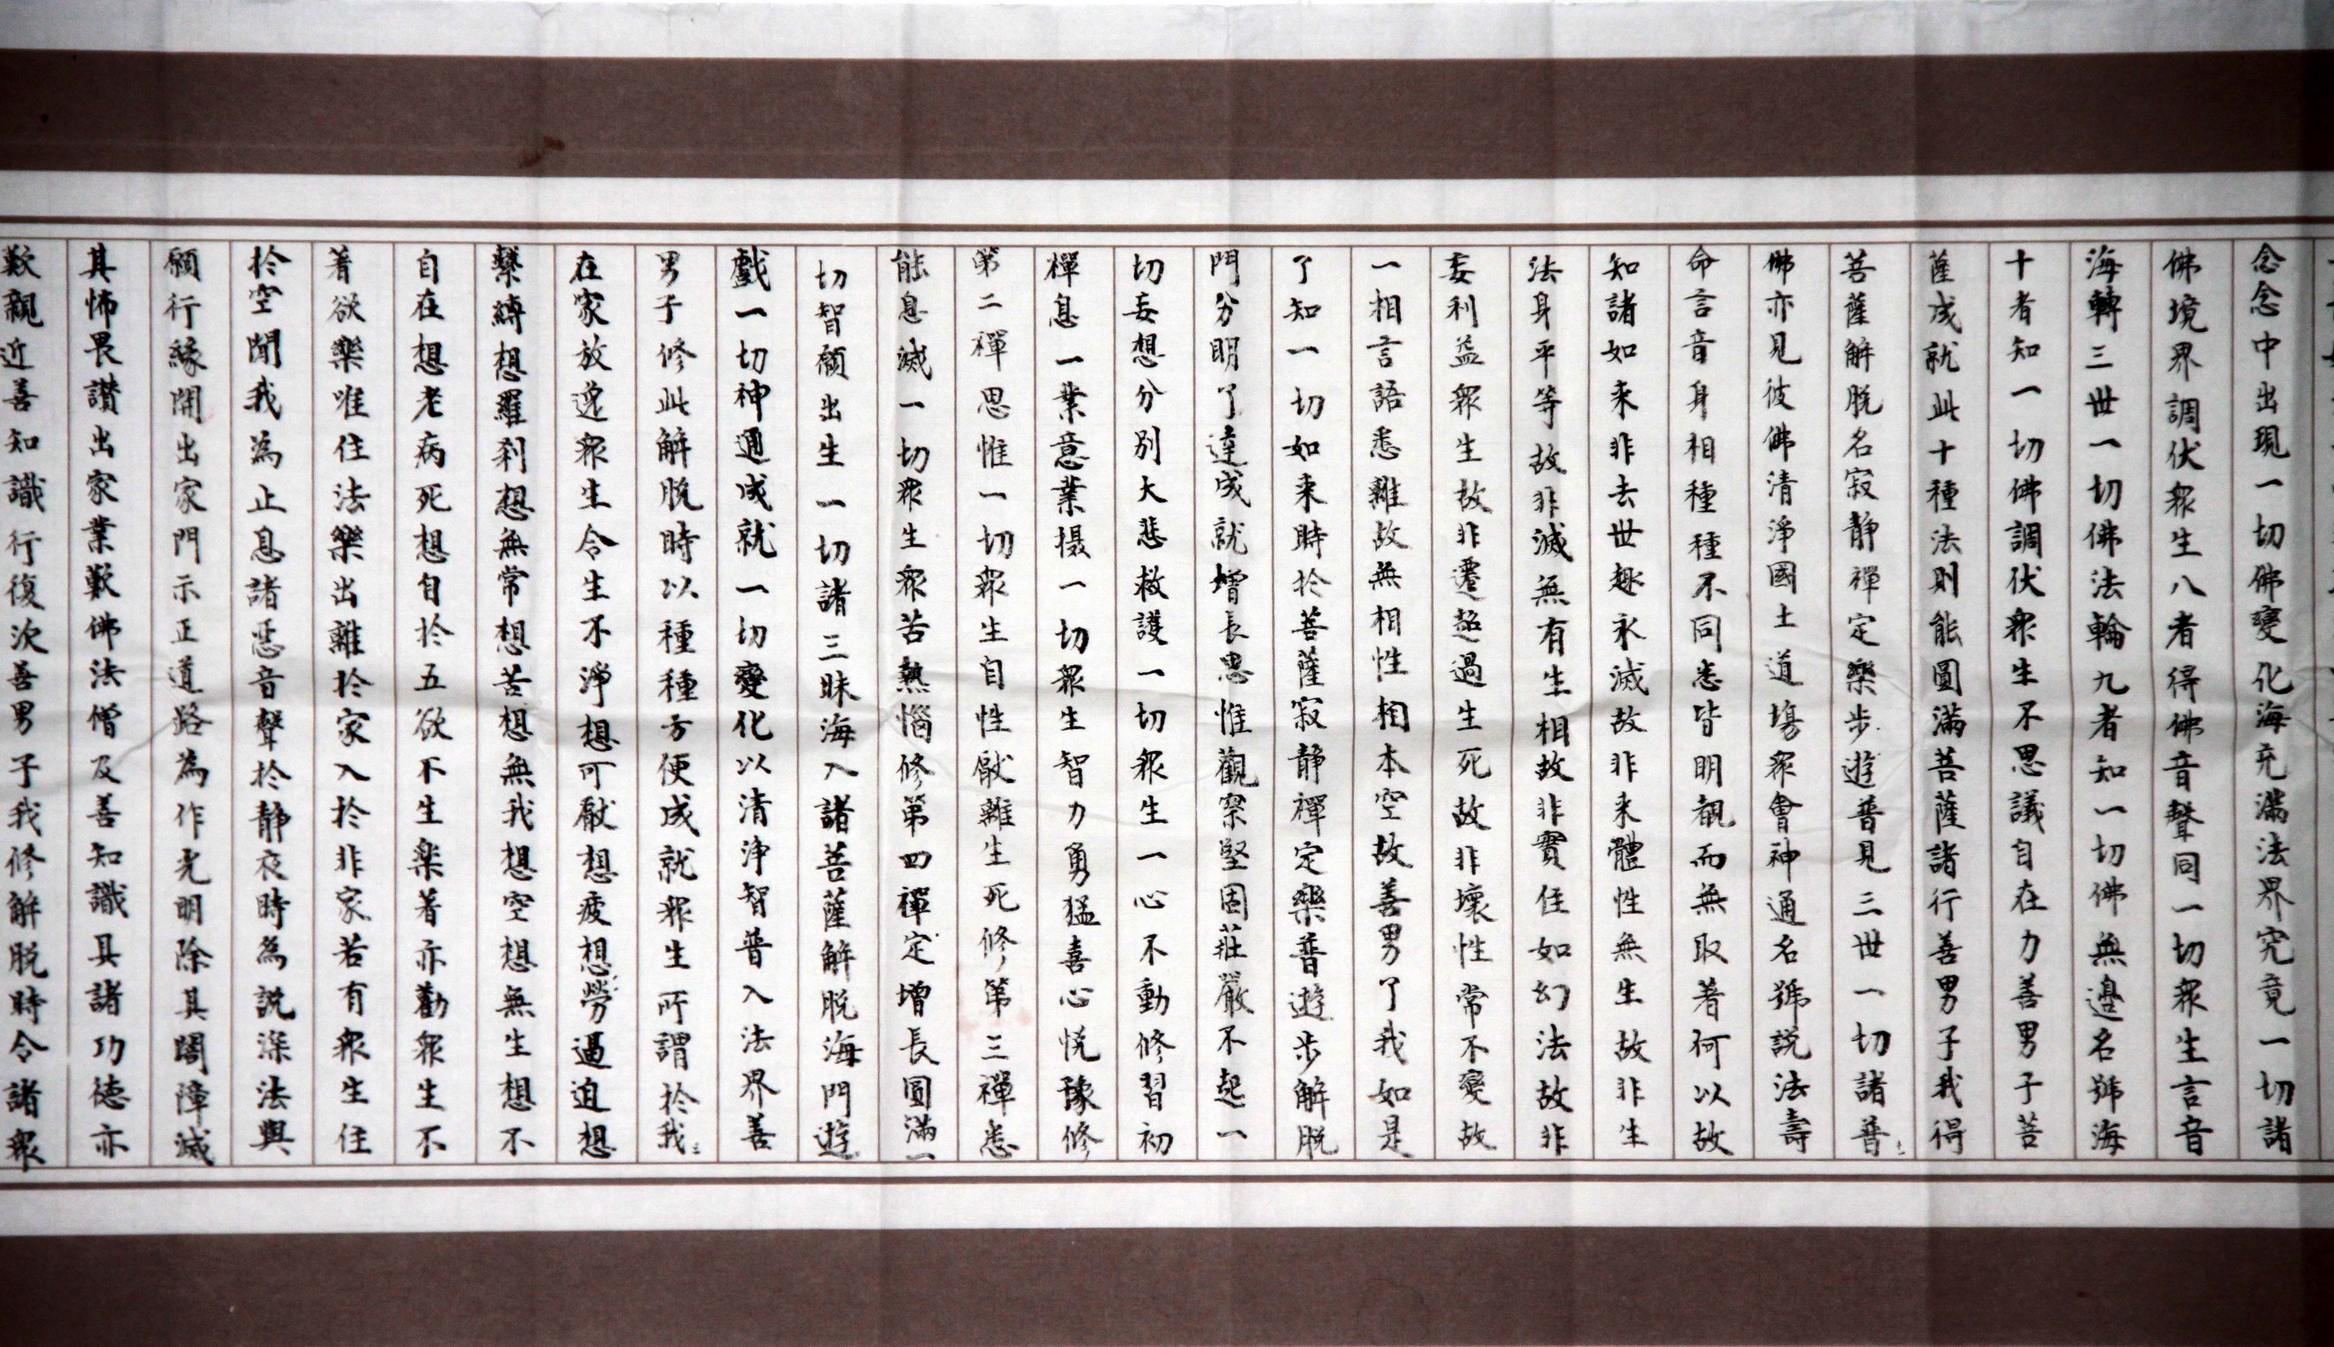 念念中出現一切佛變化海充滿法界究竟一切諸
佛境界調伏眾生八者得佛音聲同一切眾生言音
海轉三世一切佛法輪九者知一切佛無邊名號海
十者知一切佛調伏眾生不思議自在力善男子菩
薩成就此十種法則能圓滿菩薩諸行善男子我得
菩薩解脫名寂靜禪定樂步遊普見三世一切諸普
佛亦見彼佛清淨國土道場眾會神通名號說法壽
命言音身相種種不同悉皆明觀而無取著何以故
知諸如來非去世趣永滅故非來體性無生故非生
法身平等故非滅無有生相故非實住如幻法故非
妄利益眾生故非遷超過生死故非壞性常不變故
一相言語悉離故無相性相本空故善男了我如是
了知一切如來時於菩薩寂靜禪定樂普遊步解脫
門分明了達成就增長思惟觀察堅固莊嚴不起一
切妄想分別大悲救護一切眾生一心不動修習初
禪息一業意業攝一切眾生智力勇猛喜心悅豫修
第二禪思惟一切眾生自性厭離生死修第三禪悉
能息滅一切眾生眾苦熱惱修第四禪定增長圓滿一
切智願出生一切諸三昧海入諸菩薩解脫海門遊
戲一切神通成就一切變化以清淨智普入法界善
男子修此解脫時以種種方便成就眾生所謂於我
在家放逸眾生令生不淨想可厭想疲想勞過迫想
繫縛想羅剎想無常想苦想無我想空想無生想不
自在想老病死想自於五欲不生樂著亦勸眾生不
著欲樂唯住法樂出離於家入於非家若有眾生住
於空閑我為止息諸惡音聲於靜夜時為說深法與
順行緣開出家門示正道路為作光明除其闇障滅
其怖畏讚出家業歎佛法僧及善知識具諸功德亦
歎親近善知識行復次善男子我修解脫時令諸眾